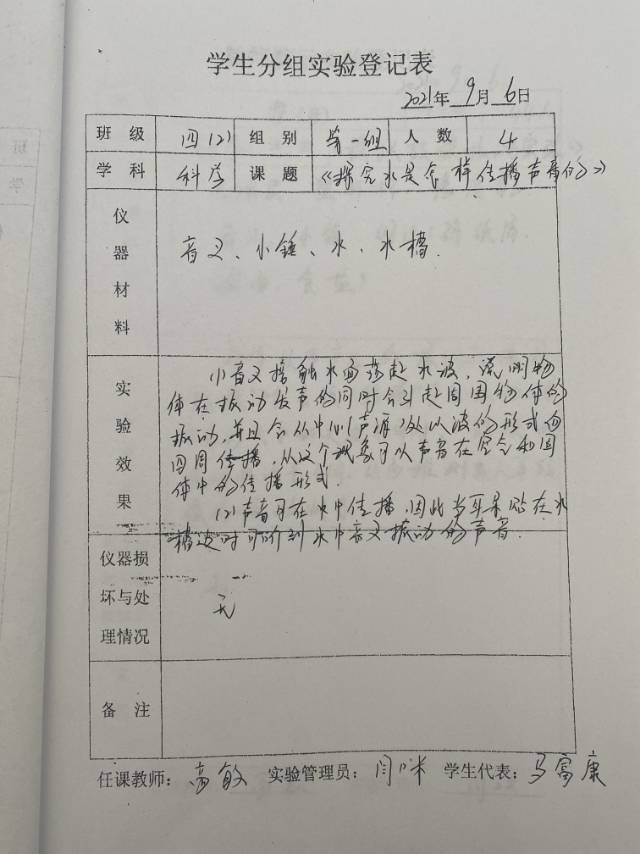 学生分组实验登记表
2021年 9月 6日
班 级 四(2) 组 别 第一组 人 数 4
学 科 科学 课 题 《探究水是怎样传播声音的》
仪器材料 音叉、小锤、水、水槽.
实验效果
(1)音叉接触水面荡起水波,说明物
体在振动发声的同时会引起周围物体的
振动,并且会从中心(声源)处以波的形式向
四周传播,从这个现象可以声音在空气和固
体中的传播形式.
(2)声音可在水中传播,因此当耳朵贴在水
槽边时可听到水中音叉振动的声音.
仪器损坏与处理情况 无
备 注
任课教师: 高敏 实验管理员: 闫 学生代表: 马富康